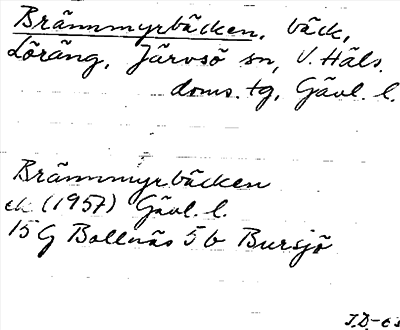 Brännmyrbäcken, bäck,
Löräng, Järvsö sn, V. Häls.
doms. tg, Gävl. l.
Brännmyrbäcken
ek (1957) Gävl. l.
15 G Bollnäs 5 b Bursjö
I.D.-63